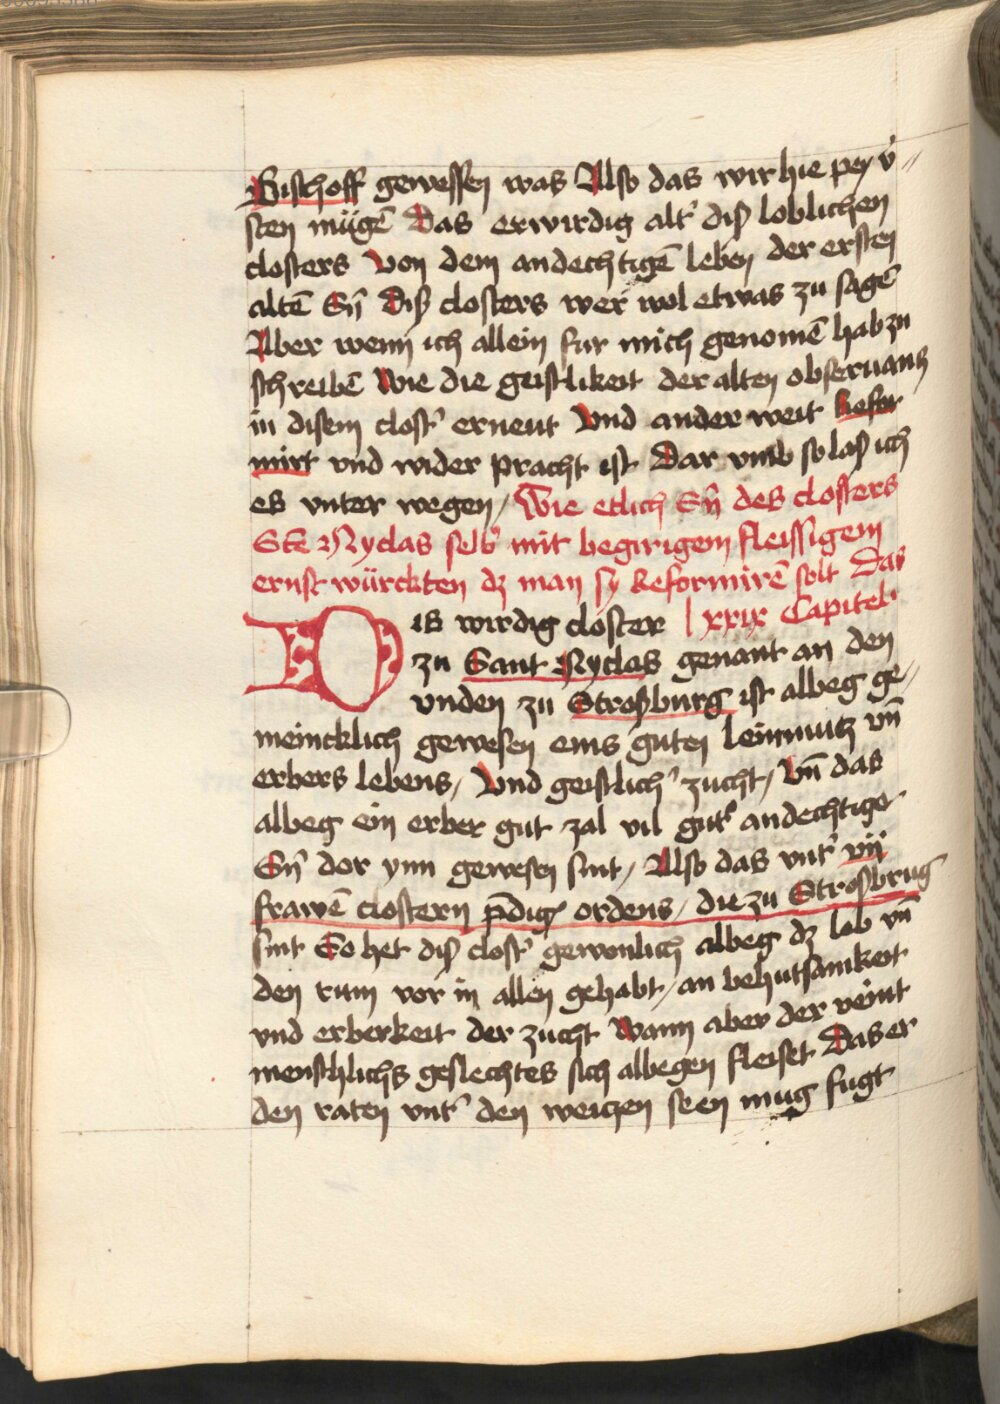 Bischoff gewessen was Also das wir hie pey v̾ //
sten mügē Das erwirdig alt' diß loblichen
closters Von dem andechtigē leben der ersten
altē Sw̄ diß closters wer wol etwas zu sagē
Aber wenn ich allein fur mich genomē hab zu
schreibē Wie die geistlikeit der alten obseruantz
in disem clost' erneut Vnd ander weit Refor
mirt vnd wider pracht ist Dar vmb so laß ich
es vnter wegen / Wie etlich Sw̄ des closters
Sāt Nyclas selb' mit begirigem fleissigem
ernst würckten dz man sy Reformirē solt Das
DIs wirdig closter | xxix Capitel
zu Sant Nyclas genant an den
vnden zu Stroßburg ist albeg ge /
meincklich gewesen eins guten leimuntz vn̄
erbers lebens / Vnd geistlich' zucht / Vn̄ das
albeg ein erber gut zal vil gut' andechtiger
Sw̄ dor ynn gewesen sint / Also das vnt' vij
frawē clostern p̄dig' ordens / die zu Stroßbrug
sint So het diß clost' gewonlich albeg dz lob vn̄
den rum vor in allen gehabt / an behutsamkeit
vnd erberkeit der zucht Wann aber der veint
menschlichs geslechtes sich albegen fleiset Das er
den raten vnt' den weiczen seen mug fugt